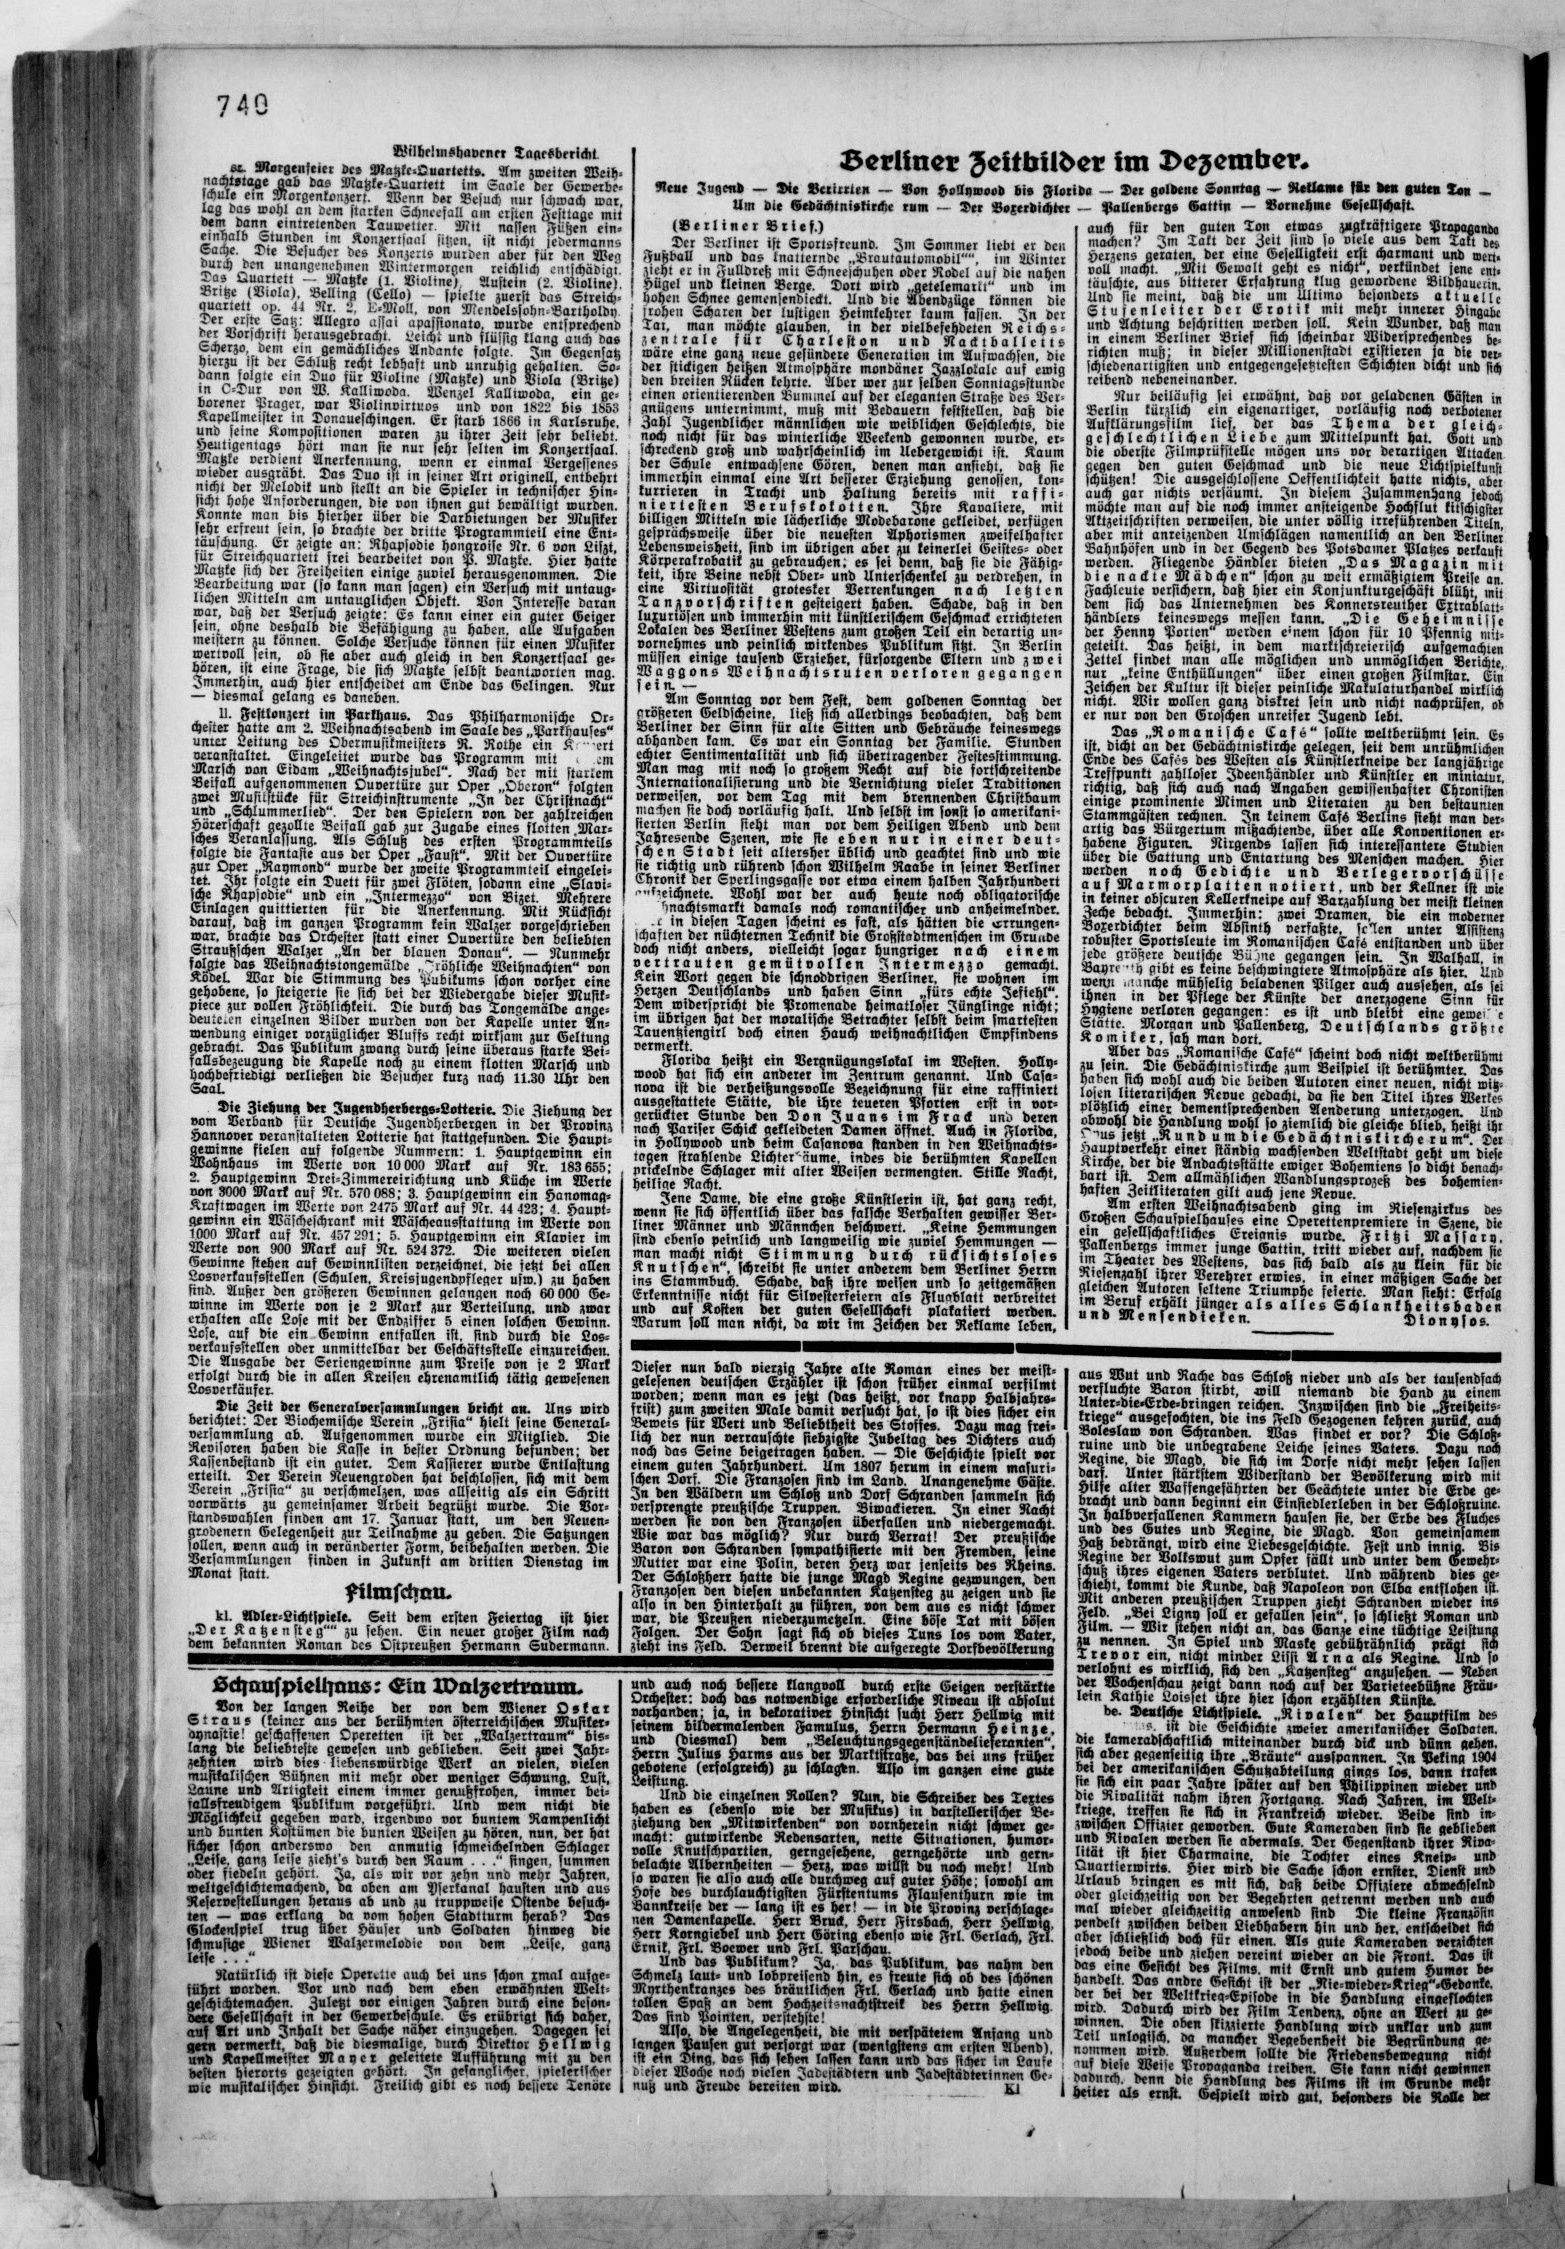 740
Wilhelmshavener Tagesbericht.
sz. Morgenfeier des Matzke-Quartetts. Am zweiten Weih-
nachtstage gab das Matzke-Quartett im Saale der Gewerbe-
schule ein Morgenkonzert. Wenn der Besuch nur schwach war,
lag das wohl an dem starken Schneefall am ersten Festtage mit
dem dann eintretenden Tauwetter. Mit nassen Füßen ein-
einhalb Stunden im Konzertsaal sitzen, ist nicht jedermanns
Sache. Die Besucher des Konzerts wurden aber für den Weg
durch den unangenehmen Wintermorgen reichlich entschädigt.
Das Quartett — Matzke (1. Violine), Austein (2. Violine),
Britze (Viola), Belling (Cello) — spielte zuerst das Streich-
quartett op. 44 Nr. 2, E-Moll, von Mendelssohn-Bartholdy.
Der erste Satz: Allegro assai apassionato, wurde entsprechend
der Vorschrift herausgebracht. Leicht und flüssig klang auch das
Scherzo, dem ein gemächliches Andante folgte. Im Gegensatz
hierzu ist der Schluß recht lebhaft und unruhig gehalten. So-
dann folgte ein Duo für Violine (Matzke) und Viola (Britze)
in C-Dur von W. Kalliwoda. Wenzel Kalliwoda, ein ge-
borener Prager, war Violinvirtuos und von 1822 bis 1853
Kapellmeister in Donaueschingen. Er starb 1866 in Karlsruhe,
und seine Kompositionen waren zu ihrer Zeit sehr beliebt.
Heutigentags hört man sie nur sehr selten im Konzertsaal.
Matzke verdient Anerkennung, wenn er einmal Vergessenes
wieder ausgräbt. Das Duo ist in seiner Art originell, entbehrt
nicht der Melodik und stellt an die Spieler in technischer Hin-
sicht hohe Anforderungen, die von ihnen gut bewältigt wurden.
Konnte man bis hierher über die Darbietungen der Musiker
sehr erfreut sein, so brachte der dritte Programmteil eine Ent-
täuschung. Er zeigte an: Rhapsodie hongroise Nr. 6 von Liszt,
für Streichquartett frei bearbeitet von P. Matzke. Hier hatte
Matzke sich der Freiheiten einige zuviel herausgenommen. Die
Bearbeitung war (so kann man sagen) ein Versuch mit untaug-
lichen Mitteln am untauglichen Objekt. Von Interesse daran
war, daß der Versuch zeigte: Es kann einer ein guter Geiger
sein, ohne deshalb die Befähigung zu haben, alle Aufgaben
meistern zu können. Solche Versuche können für einen Musiker
wertvoll sein, ob sie aber auch gleich in den Konzertsaal ge-
hören, ist eine Frage, die sich Matzke selbst beantworten mag.
Immerhin, auch hier entscheidet am Ende das Gelingen. Nur
— diesmal gelang es daneben.
ll. Festkonzert im Parkhaus. Das Philharmonische Or-
chester hatte am 2. Weihnachtsabend im Saale des „Parkhauses"
unter Leitung des Obermusikmeisters R. Rothe ein
veranstaltet. Eingeleitet wurde das Programm mit
Marsch von Eidam „Weihnachtsjubel". Nach der mit starkem
Beifall aufgenommenen Ouvertüre zur Oper „Oberon" folgten
zwei Musikstücke für Streichinstrumente „In der Christnacht"
und „Schlummerlied". Der den Spielern von der zahlreichen
Hörerschaft gezollte Beifall gab zur Zugabe eines flotten Mar-
sches Veranlassung. Als Schluß des ersten Programmteils
folgte die Fantasie aus der Oper „Faust". Mit der Ouvertüre
zur Oper „Raymond" wurde der zweite Programmteil eingelei-
tet. Ihr folgte ein Duett für zwei Flöten, sodann eine „Slavi-
sche Rhapsodie" und ein „Intermezzo" von Bizet. Mehrere
Einlagen quittierten für die Anerkennung. Mit Rücksicht
darauf, daß im ganzen Programm kein Walzer vorgeschrieben
war, brachte das Orchester statt einer Ouvertüre den beliebten
Straußschen Walzer „An der blauen Donau". — Nunmehr
folgte das Weihnachtstongemälde „Fröhliche Weihnachten" von
Ködel. War die Stimmung des Publikums schon vorher eine
gehobene, so steigerte sie sich bei der Wiedergabe dieser Musik-
piece zur vollen Fröhlichkeit. Die durch das Tongemälde ange-
deuteten einzelnen Bilder wurden von der Kapelle unter An-
wendung einiger vorzüglicher Bluffs recht wirksam zur Geltung
gebracht. Das Publikum zwang durch seine überaus starke Bei-
fallsbezeugung die Kapelle noch zu einem flotten Marsch und
hochbefriedigt verließen die Besucher kurz nach 11.30 Uhr den
Saal.
Die Ziehung der Jugendherbergs-Lotterie. Die Ziehung der
vom Verband für Deutsche Jugendherbergen in der Provinz
Hannover veranstalteten Lotterie hat stattgefunden. Die Haupt-
gewinne fielen auf folgende Nummern: 1. Hauptgewinn ein
Wohnhaus im Werte von 10 000 Mark auf Nr. 183 655;
2. Hauptgewinn Drei-Zimmereirichtung und Küche im Werte
von 3000 Mark auf Nr. 570 088; 3. Hauptgewinn ein Hanomag-
Kraftwagen im Werte von 2475 Mark auf Nr. 44 423; 4. Haupt-
gewinn ein Wäscheschrank mit Wäscheausstattung im Werte von
1000 Mark auf Nr. 457 291; 5. Hauptgewinn ein Klavier im
Werte von 900 Mark auf Nr. 524 372. Die weiteren vielen
Gewinne stehen auf Gewinnlisten verzeichnet, die jetzt bei allen
Losverkaufsstellen (Schulen, Kreisjugendpfleger usw.) zu haben
sind. Außer den größeren Gewinnen gelangen noch 60 000 Ge-
winne im Werte von je 2 Mark zur Verteilung, und zwar
erhalten alle Lose mit der Endziffer 5 einen solchen Gewinn.
Lose, auf die ein Gewinn entfallen ist, sind durch die Los-
verkaufsstellen oder unmittelbar der Geschäftsstelle einzureichen.
Die Ausgabe der Seriengewinne zum Preise von je 2 Mark
erfolgt durch die in allen Kreisen ehrenamtlich tätig gewesenen
Losverkäufer.
Die Zeit der Generalversammlungen bricht an. Uns wird
berichtet: Der Biochemische Verein „Frisia" hielt seine General-
versammlung ab. Aufgenommen wurde ein Mitglied. Die
Revisoren haben die Kasse in bester Ordnung befunden; der
Kassenbestand ist ein guter. Dem Kassierer wurde Entlastung
erteilt. Der Verein Neuengroden hat beschlossen, sich mit dem
Verein „Frisia" zu verschmelzen, was allseitig als ein Schritt
vorwärts zu gemeinsamer Arbeit begrüßt wurde. Die Vor-
standswahlen finden am 17. Januar statt, um den Neuen-
grodenern Gelegenheit zur Teilnahme zu geben. Die Satzungen
sollen, wenn auch in veränderter Form, beibehalten werden. Die
Versammlungen finden in Zukunft am dritten Dienstag im
Monat statt.
Filmschau.
kl. Adler-Lichtspiele. Seit dem ersten Feiertag ist hier
„Der Katzensteg"" zu sehen. Ein neuer großer Film nach
dem bekannten Roman des Ostpreußen Hermann Sudermann.
Dieser nun bald vierzig Jahre alte Roman eines der meist-
gelesenen deutschen Erzähler ist schon früher einmal verfilmt
worden; wenn man es jetzt (das heißt, vor knapp Halbjahrs-
frist) zum zweiten Male damit versucht hat, so ist dies sicher ein
Beweis für Wert und Beliebtheit des Stoffes. Dazu mag frei-
lich der nun verrauschte siebzigste Jubeltag des Dichters auch
noch das Seine beigetragen haben. — Die Geschichte spielt vor
einem guten Jahrhundert. Um 1807 herum in einem masuri-
schen Dorf. Die Franzosen sind im Land. Unangenehme Gäste.
In den Wäldern um Schloß und Dorf Schranden sammeln sich
versprengte preußische Truppen. Biwackieren. In einer Nacht
werden sie von den Franzosen überfallen und niedergemacht.
Wie war das möglich? Nur durch Verrat! Der preußische
Baron von Schranden sympathisierte mit den Fremden, seine
Mutter war eine Polin, deren Herz war jenseits des Rheins.
Der Schloßherr hatte die junge Magd Regine gezwungen, den
Franzosen den diesen unbekannten Katzensteg zu zeigen und sie
also in den Hinterhalt zu führen, von dem aus es nicht schwer
war, die Preußen niederzumetzeln. Eine böse Tat mit bösen
Folgen. Der Sohn sagt sich ob dieses Tuns los vom Vater,
zieht ins Feld. Derweil brennt die aufgeregte Dorfbevölkerung
aus Wut und Rache das Schloß nieder und als der tausendfach
verfluchte Baron stirbt, will niemand die Hand zu einem
Unter-die-Erde-bringen reichen. Inzwischen sind die „Freiheits-
kriege" ausgefochten, die ins Feld Gezogenen kehren zurück, auch
Boleslaw von Schranden. Was findet er vor? Die Schloß-
ruine und die unbegrabene Leiche seines Vaters. Dazu noch
Regine, die Magd, die sich im Dorfe nicht mehr sehen lassen
darf. Unter stärkstem Widerstand der Bevölkerung wird mit
Hilfe alter Waffengefährten der Geächtete unter die Erde ge-
bracht und dann beginnt ein Einsiedlerleben in der Schloßruine.
In halbverfallenen Kammern hausen sie, der Erbe des Fluches
und des Gutes und Regine, die Magd. Von gemeinsamem
Haß bedrängt, wird eine Liebesgeschichte. Fest und innig. Bis
Regine der Volkswut zum Opfer fällt und unter dem Gewehr-
schuß ihres eigenen Vaters verblutet. Und während dies ge-
schieht, kommt die Kunde, daß Napoleon von Elba entflohen ist.
Mit anderen preußischen Truppen zieht Schranden wieder ins
Feld. „Bei Ligny soll er gefallen sein", so schließt Roman und
Film. — Wir stehen nicht an, das Ganze eine tüchtige Leistung
zu nennen. In Spiel und Maske gebührähnlich prägt sich
Trevor ein, nicht minder Lissi Arna als Regine. Und so
verlohnt es wirklich, sich den „Katzensteg" anzusehen. — Neben
der Wochenschau zeigt dann noch auf der Varieteebühne Fräu-
lein Kathie Loisset ihre hier schon erzählten Künste.
be. Deutsche Lichtspiele. „Rivalen" der Hauptfilm des
ist die Geschichte zweier amerikanischer Soldaten,
die kameradschaftlich miteinander durch dick und dünn gehen,
sich aber gegenseitig ihre „Bräute" ausspannen. In Peking 1904
bei der amerikanischen Schutzabteilung gings los, dann trafen
sie sich ein paar Jahre später auf den Philippinen wieder und
die Rivalität nahm ihren Fortgang. Nach Jahren, im Welt-
kriege, treffen sie sich in Frankreich wieder. Beide sind in-
zwischen Offizier geworden. Gute Kameraden sind sie geblieben
und Rivalen werden sie abermals. Der Gegenstand ihrer Riva-
lität ist hier Charmaine, die Tochter eines Kneip- und
Quartierwirts. Hier wird die Sache schon ernster, Dienst und
Urlaub bringen es mit sich, daß beide Offiziere abwechselnd
oder gleichzeitig von der Begehrten getrennt werden und auch
mal wieder gleichzeitig anwesend sind Die kleine Französin
pendelt zwischen beiden Liebhabern hin und her, entscheidet sich
aber schließlich doch für einen. Als gute Kameraden verzichten
jedoch beide und ziehen vereint wieder an die Front. Das ist
das eine Gesicht des Films, mit Ernst und gutem Humor be-
handelt. Das andre Gesicht ist der „Nie-wieder-Krieg"-Gedanke,
der bei der Weltkrieg-Episode in die Handlung eingeflochten
wird. Dadurch wird der Film Tendenz, ohne an Wert zu ge-
winnen. Die oben skizzierte Handlung wird unklar und zum
Teil unlogisch, da mancher Begebenheit die Begründung ge-
nommen wird. Außerdem sollte die Friedensbewegung nicht
auf diese Weise Propaganda treiben. Sie kann nicht gewinnen
dadurch, denn die Handlung des Films ist im Grunde mehr
heiter als ernst. Gespielt wird gut, besonders die Rolle der
Berliner Zeitbilder im Dezember.
Neue Jugend — Die Verirrten — Von Hollywood bis Florida — Der goldene Sonntag — Reklame für den guten Ton —
Um die Gedächtniskirche rum — Der Boxerdichter — Pallenbergs Gattin — Vornehme Gesellschaft.
(Berliner Brief.)
Der Berliner ist Sportsfreund. Im Sommer liebt er den
Fußball und das knatternde „Brautautomobil"", im Winter
zieht er in Fulldreß mit Schneeschuhen oder Rodel auf die nahen
Hügel und kleinen Berge. Dort wird „getelemarkt" und im
hohen Schnee gemensendieckt. Und die Abendzüge können die
frohen Scharen der lustigen Heimkehrer kaum fassen. In der
Tat, man möchte glauben, in der vielbefehdeten Reichs-
zentrale für Charleston und Nacktballetts
wäre eine ganz neue gesündere Generation im Aufwachsen, die
der stickigen heißen Atmosphäre mondäner Jazzlokale auf ewig
den breiten Rücken kehrte. Aber wer zur selben Sonntagsstunde
einen orientierenden Bummel auf der eleganten Straße des Ver-
gnügens unternimmt, muß mit Bedauern feststellen, daß die
Zahl Jugendlicher männlichen wie weiblichen Geschlechts, die
noch nicht für das winterliche Weekend gewonnen wurde, er-
schreckend groß und wahrscheinlich im Uebergewicht ist. Kaum
der Schule entwachsene Gören, denen man ansieht, daß sie
immerhin einmal eine Art besserer Erziehung genossen, kon-
kurrieren in Tracht und Haltung bereits mit raffi-
niertesten Berufskokotten. Ihre Kavaliere, mit
billigen Mitteln wie lächerliche Modebarone gekleidet, verfügen
gesprächsweise über die neuesten Aphorismen zweifelhafter
Lebensweisheit, sind im übrigen aber zu keinerlei Geistes- oder
Körperakrobatik zu gebrauchen; es sei denn, daß sie die Fähig-
keit, ihre Beine nebst Ober- und Unterschenkel zu verdrehen, in
eine Virtuosität grotesker Verrenkungen nach letzten
Tanzvorschriften gesteigert haben. Schade, daß in den
luxuriösen und immerhin mit künstlerischem Geschmack errichteten
Lokalen des Berliner Westens zum großen Teil ein derartig un-
vornehmes und peinlich wirkendes Publikum sitzt. In Berlin
müssen einige tausend Erzieher, fürsorgende Eltern und zwei
Waggons Weihnachtsruten verloren gegangen
sein. —
Am Sonntag vor dem Fest, dem goldenen Sonntag der
größeren Geldscheine, ließ sich allerdings beobachten, daß dem
Berliner der Sinn für alte Sitten und Gebräuche keineswegs
abhanden kam. Es war ein Sonntag der Familie. Stunden
echter Sentimentalität und sich übertragender Festesstimmung.
Man mag mit noch so großem Recht auf die fortschreitende
Internationalisierung und die Vernichtung vieler Traditionen
verweisen, vor dem Tag mit dem brennenden Christbaum
machen sie doch vorläufig halt. Und selbst im sonst so amerikani-
sierten Berlin sieht man vor dem Heiligen Abend und dem
Jahresende Szenen, wie sie eben nur in einer deut-
schen Stadt seit altersher üblich und geachtet sind und wie
sie richtig und rührend schon Wilhelm Raabe in seiner Berliner
Chronik der Sperlingsgasse vor etwa einem halben Jahrhundert
aufzeichnete. Wohl war der auch heute noch obligatorische
damals noch romantischer und anheimelnder.
in diesen Tagen scheint es fast, als hätten die Errungen-
schaften der nüchternen Technik die Großstadtmenschen im Grunde
doch nicht anders, vielleicht sogar hungriger nach einem
vertrauten gemütvollen Intermezzo gemacht.
Kein Wort gegen die schnoddrigen Berliner, sie wohnen im
Herzen Deutschlands und haben Sinn „fürs echte Jefiehl".
Dem widerspricht die Promenade heimatloser Jünglinge nicht;
im übrigen hat der moralische Betrachter selbst beim smartesten
Tauentziengirl doch einen Hauch weihnachtlichen Empfindens
vermerkt.
Florida heißt ein Vergnügungslokal im Westen. Holly-
wood hat sich ein anderer im Zentrum genannt. Und Casa-
nova ist die verheißungsvolle Bezeichnung für eine raffiniert
ausgestattete Stätte, die ihre teueren Pforten erst in vor-
gerückter Stunde den Don Juans im Frack und deren
nach Pariser Schick gekleideten Damen öffnet. Auch in Florida,
in Hollywood und beim Casanova standen in den Weihnachts-
tagen strahlende Lichterbäume, indes die berühmten Kapellen
prickelnde Schlager mit alter Weisen vermengten. Stille Nacht,
heilige Nacht.
Jene Dame, die eine große Künstlerin ist, hat ganz recht,
wenn sie sich öffentlich über das falsche Verhalten gewisser Ber-
liner Männer und Männchen beschwert. „Keine Hemmungen
sind ebenso peinlich und langweilig wie zuviel Hemmungen —
man macht nicht Stimmung durch rücksichtsloses
Knutschen", schreibt sie unter anderem dem Berliner Herrn
ins Stammbuch. Schade, daß ihre weisen und so zeitgemäßen
Erkenntnisse nicht für Silvesterfeiern als Flugblatt verbreitet
und auf Kosten der guten Gesellschaft plakatiert werden.
Warum soll man nicht, da wir im Zeichen der Reklame leben,
auch für den guten Ton etwas zugkräftigere Propaganda
machen? Im Takt der Zeit sind so viele aus dem Takt des
Herzens geraten, der eine Geselligkeit erst charmant und wert-
voll macht. „Mit Gewalt geht es nicht", verkündet jene ent-
täuschte, aus bitterer Erfahrung klug gewordene Bildhauerin.
Und sie meint, daß die um Ultimo besonders aktuelle
Stufenleiter der Erotik mit mehr innerer Hingabe
und Achtung beschritten werden soll. Kein Wunder, daß man
in einem Berliner Brief sich scheinbar Widersprechendes be-
richten muß; in dieser Millionenstadt existieren ja die ver-
schiedenartigsten und entgegengesetztesten Schichten dicht und sich
reibend nebeneinander.
Nur beiläufig sei erwähnt, daß vor geladenen Gästen in
Berlin kürzlich ein eigenartiger, vorläufig noch verbotener
Aufklärungsfilm lief, der das Thema der gleich-
geschlechtlichen Liebe zum Mittelpunkt hat. Gott und
die oberste Filmprüfstelle mögen uns vor derartigen Attacken
gegen den guten Geschmack und die neue Lichtspielkunst
schützen! Die ausgeschlossene Oeffentlichkeit hatte nichts, aber
auch gar nichts versäumt. In diesem Zusammenhang jedoch
möchte man auf die noch immer ansteigende Hochflut kitschigster
Aktzeitschriften verweisen, die unter völlig irreführenden Titeln,
aber mit anreizenden Umschlägen namentlich an den Berliner
Bahnhöfen und in der Gegend des Potsdamer Platzes verkauft
werden. Fliegende Händler bieten „Das Magazin mit
die nackte Mädchen" schon zu weit ermäßigtem Preise an.
Fachleute versichern, daß hier ein Konjunkturgeschäft blüht, mit
dem sich das Unternehmen des Konnersreuther Extrablatt-
händlers keineswegs messen kann. „Die Geheimnisse
der Henny Porten" werden einem schon für 10 Pfennig mit-
geteilt. Das heißt, in dem marktschreierisch aufgemachten
Zettel findet man alle möglichen und unmöglichen Berichte,
nur „keine Enthüllungen" über einen großen Filmstar. Ein
Zeichen der Kultur ist dieser peinliche Makulaturhandel wirklich
nicht. Wir wollen ganz diskret sein und nicht nachprüfen, ob
er nur von den Groschen unreifer Jugend lebt.
Das „Romanische Café" sollte weltberühmt sein. Es
ist, dicht an der Gedächtniskirche gelegen, seit dem unrühmlichen
Ende des Cafés des Westen als Künstlerkneipe der langjährige
Treffpunkt zahlloser Ideenhändler und Künstler en miniatur,
richtig, daß sich auch nach Angaben gewissenhafter Chronisten
einige prominente Mimen und Literaten zu den bestaunten
Stammgästen rechnen. In keinem Café Berlins sieht man der-
artig das Bürgertum mißachtende, über alle Konventionen er-
habene Figuren. Nirgends lassen sich interessantere Studien
über die Gattung und Entartung des Menschen machen. Hier
werden noch Gedichte und Verlegervorschüsse
auf Marmorplatten notiert, und der Kellner ist wie
in keiner obscuren Kellerkneipe auf Barzahlung der meist kleinen
Zeche bedacht. Immerhin: zwei Dramen, die ein moderner
Boxerdichter beim Absinth verfaßte, sollen unter Assistenz
robuster Sportsleute im Romanischen Café entstanden und über
jede größere deutsche Bühne gegangen sein. In Walhall, in
Bayreuth gibt es keine beschwingtere Atmosphäre als hier. Und
wenn manche mühselig beladenen Pilger auch aussehen, als sei
ihnen in der Pflege der Künste der anerzogene Sinn für
Hygiene verloren gegangen: es ist und bleibt eine geweihte
Stätte. Morgan und Pallenberg, Deutschlands größte
Komiker, sah man dort.
Aber das „Romanische Café" scheint doch nicht weltberühmt
zu sein. Die Gedächtniskirche zum Beispiel ist berühmter. Das
haben sich wohl auch die beiden Autoren einer neuen, nicht witz-
losen literarischen Revue gedacht, da sie den Titel ihres Werkes
plötzlich einer dementsprechenden Aenderung unterzogen. Und
obwohl die Handlung wohl so ziemlich die gleiche blieb, heißt ihr
jetzt „Rund um die Gedächtniskirche rum". Der
Hauptverkehr einer ständig wachsenden Weltstadt geht um diese
Kirche, der die Andachtsstätte ewiger Bohemiens so dicht benach-
bart ist. Dem allmählichen Wandlungsprozeß des bohemien-
haften Zeitliteraten gilt auch jene Revue.
Am ersten Weihnachtsabend ging im Riesenzirkus des
Großen Schauspielhauses eine Operettenpremiere in Szene, die
ein gesellschaftliches Ereignis wurde. Fritzi Massary,
Pallenbergs immer junge Gattin, tritt wieder auf, nachdem sie
im Theater des Westens, das sich bald als zu klein für die
Riesenzahl ihrer Verehrer erwies, in einer mäßigen Sache der
gleichen Autoren seltene Triumphe feierte. Man sieht: Erfolg
im Beruf erhält jünger als alles Schlankheitsbaden
und Mensendieken. Dionysos.
Schauspielhaus: Ein Walzertraum.
Von der langen Reihe der von dem Wiener Oskar
Straus (keiner aus der berühmten österreichischen Musiker-
dynastie! geschaffenen Operetten ist der „Walzertraum" bis-
lang die beliebteste gewesen und geblieben. Seit zwei Jahr-
zehnten wird dies liebenswürdige Werk an vielen, vielen
musikalischen Bühnen mit mehr oder weniger Schwung, Lust,
Laune und Artigkeit einem immer genußfrohen, immer bei-
fallsfreudigem Publikum vorgeführt. Und wem nicht die
Möglichkeit gegeben ward, irgendwo vor buntem Rampenlicht
und bunten Kostümen die bunten Weisen zu hören, nun, der hat
sicher schon anderswo den anmutig schmeichelnden Schlager
„Leise, ganz leise zieht's durch den Raum . . ." singen, summen
oder fiedeln gehört. Ja, als wir vor zehn und mehr Jahren,
weltgeschichtemachend, da oben am Yserkanal hausten und aus
Reservestellungen heraus ab und zu truppweise Ostende besuch-
ten — was erklang da vom hohen Stadtturm herab? Das
Glockenspiel trug über Häuser und Soldaten hinweg die
schmusige Wiener Walzermelodie von dem „Leise, ganz
leise . . ."
Natürlich ist diese Operette auch bei uns schon xmal aufge-
führt worden. Vor und nach dem eben erwähnten Welt-
geschichtemachen. Zuletzt vor einigen Jahren durch eine beson-
dere Gesellschaft in der Gewerbeschule. Es erübrigt sich daher,
auf Art und Inhalt der Sache näher einzugehen. Dagegen sei
gern vermerkt, daß die diesmalige, durch Direktor Hellwig
und Kapellmeister Mayer geleitete Aufführung mit zu den
besten hierorts gezeigten gehört. In gesanglicher, spielerischer
wie musikalischer Hinsicht. Freilich gibt es noch bessere Tenöre
und auch noch bessere klangvoll durch erste Geigen verstärkte
Orchester: doch das notwendige erforderliche Niveau ist absolut
vorhanden; ja, in dekorativer Hinsicht sucht Herr Hellwig mit
seinem bildermalenden Famulus, Herrn Hermann Heinze,
und (diesmal) dem „Beleuchtungsgegenständelieferanten",
Herrn Julius Harms aus der Marktstraße, das bei uns früher
gebotene (erfolgreich) zu schlagen. Also im ganzen eine gute
Leistung.
Und die einzelnen Rollen? Nun, die Schreiber des Textes
haben es (ebenso wie der Musikus) in darstellerischer Be-
ziehung den „Mitwirkenden" von vornherein nicht schwer ge-
macht: gutwirkende Redensarten, nette Situationen, humor-
volle Knutschpartien, gerngesehene, gerngehörte und gern-
belachte Albernheiten — Herz, was willst du noch mehr! Und
so waren sie also auch alle durchweg auf guter Höhe; sowohl am
Hofe des durchlauchtigsten Fürstentums Flausenthurn wie im
Bannkreise der — lang ist es her! — in die Provinz verschlage-
nen Damenkapelle. Herr Bruck, Herr Firsbach, Herr Hellwig,
Herr Korngiebel und Herr Göring ebenso wie Frl. Gerlach, Frl.
Ernik, Frl. Boewer und Frl. Parschau.
Und das Publikum? Ja, das Publikum, das nahm den
Schmelz laut- und lobpreisend hin, es freute sich ob des schönen
Myrthenkranzes des bräutlichen Frl. Gerlach und hatte einen
tollen Spaß an dem Hochzeitsnachtstreik des Herrn Hellwig.
Das sind Pointen, verstehste!
Also, die Angelegenheit, die mit verspätetem Anfang und
langen Pausen gut versorgt war (wenigstens am ersten Abend),
ist ein Ding, das sich sehen lassen kann und das sicher im Laufe
dieser Woche noch vielen Jadestädtern und Jadestädterinnen Ge-
nuß und Freude bereiten wird. Kl